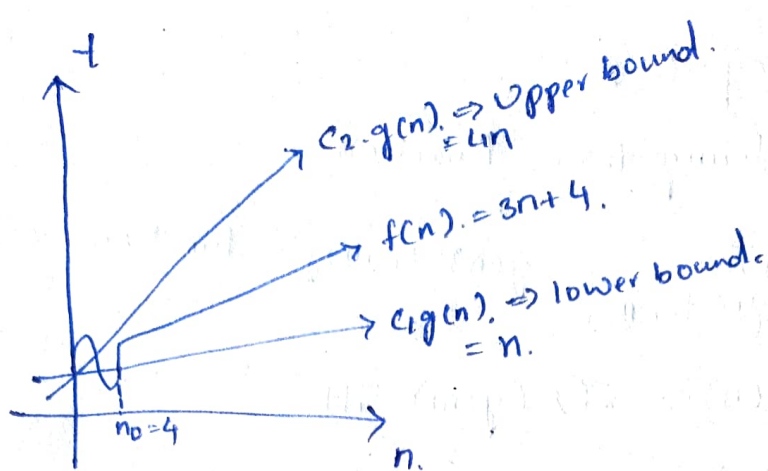 t
c₂.g(n). ⇒ Upper bound.
= 4n
f(n). = 3n+4.
c₁g(n). ⇒ lower bound.
= n.
n₀=4
n.